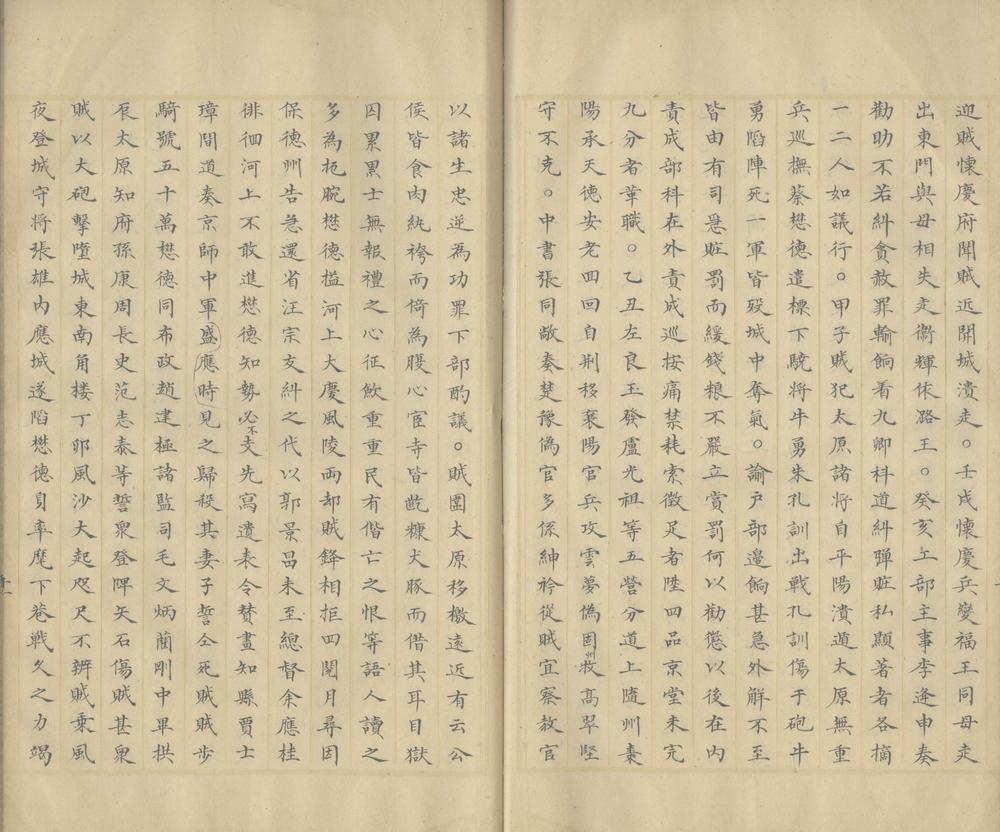 迎賊懷慶府聞賊近開城潰走○壬戌懷慶兵變福王同母走
出東門與母相失走衞輝依潞王○癸亥工部主事李逢申奏
勸助不若糾貪赦罪輸餉看九卿科道糾彈賍私顯著者各摘
一二人如議行○甲子賊犯太原諸將自平陽潰遁太原無重
兵巡撫蔡懋德遣標下驍將牛勇朱孔訓出戰孔訓傷于砲牛
勇陷陣死一軍皆歿城中奪氣○諭戶部邊餉甚急外觧不至
皆由有司急賍罰而緩錢粮不嚴立賞罰何以勸懲以後在內
責成部科在外責成巡按痛禁耗索徵足者陞四品京堂未完
九分者革職○乙丑左良玉發盧光祖等五營分道上隨州棗
陽承天德安老回回自荊移襄陽官兵攻雲夢偽固州牧高翠堅
守不克○中書張同敞奏楚豫偽官多係紳衿從賊宜察敕官
以諸生忠逆為功罪下部酌議○賊圍太原移檄遠近有云公
侯皆食肉紈袴而倚為腹心宦寺皆齕糠犬豚而借其耳目獄
囚累累士無報禮之心征歛重重民有偕亡之恨等語人讀之
多為扼腕懋德搤河上大慶風陵両却賊鋒相拒四閱月尋因
保德州告急還省汪宗友糾之代以郭景昌未至總督余應桂
徘徊河上不敢進懋德知勢必不支先寫遺表令賛畫知縣賈士
璋間道奏京師中軍盛應時見之歸殺其妻子誓仝死賊賊步
騎號五十萬懋德同布政趙建極諸監司毛文炳藺剛中畢拱
辰太原知府孫康周長史范志泰等誓衆登陴矢石傷賊甚衆
賊以大砲擊墮城東南角楼丁夘風沙大起咫尺不辨賊乘風
夜登城守将張雄内應城遂陷懋德自率麾下巷戰久之力竭